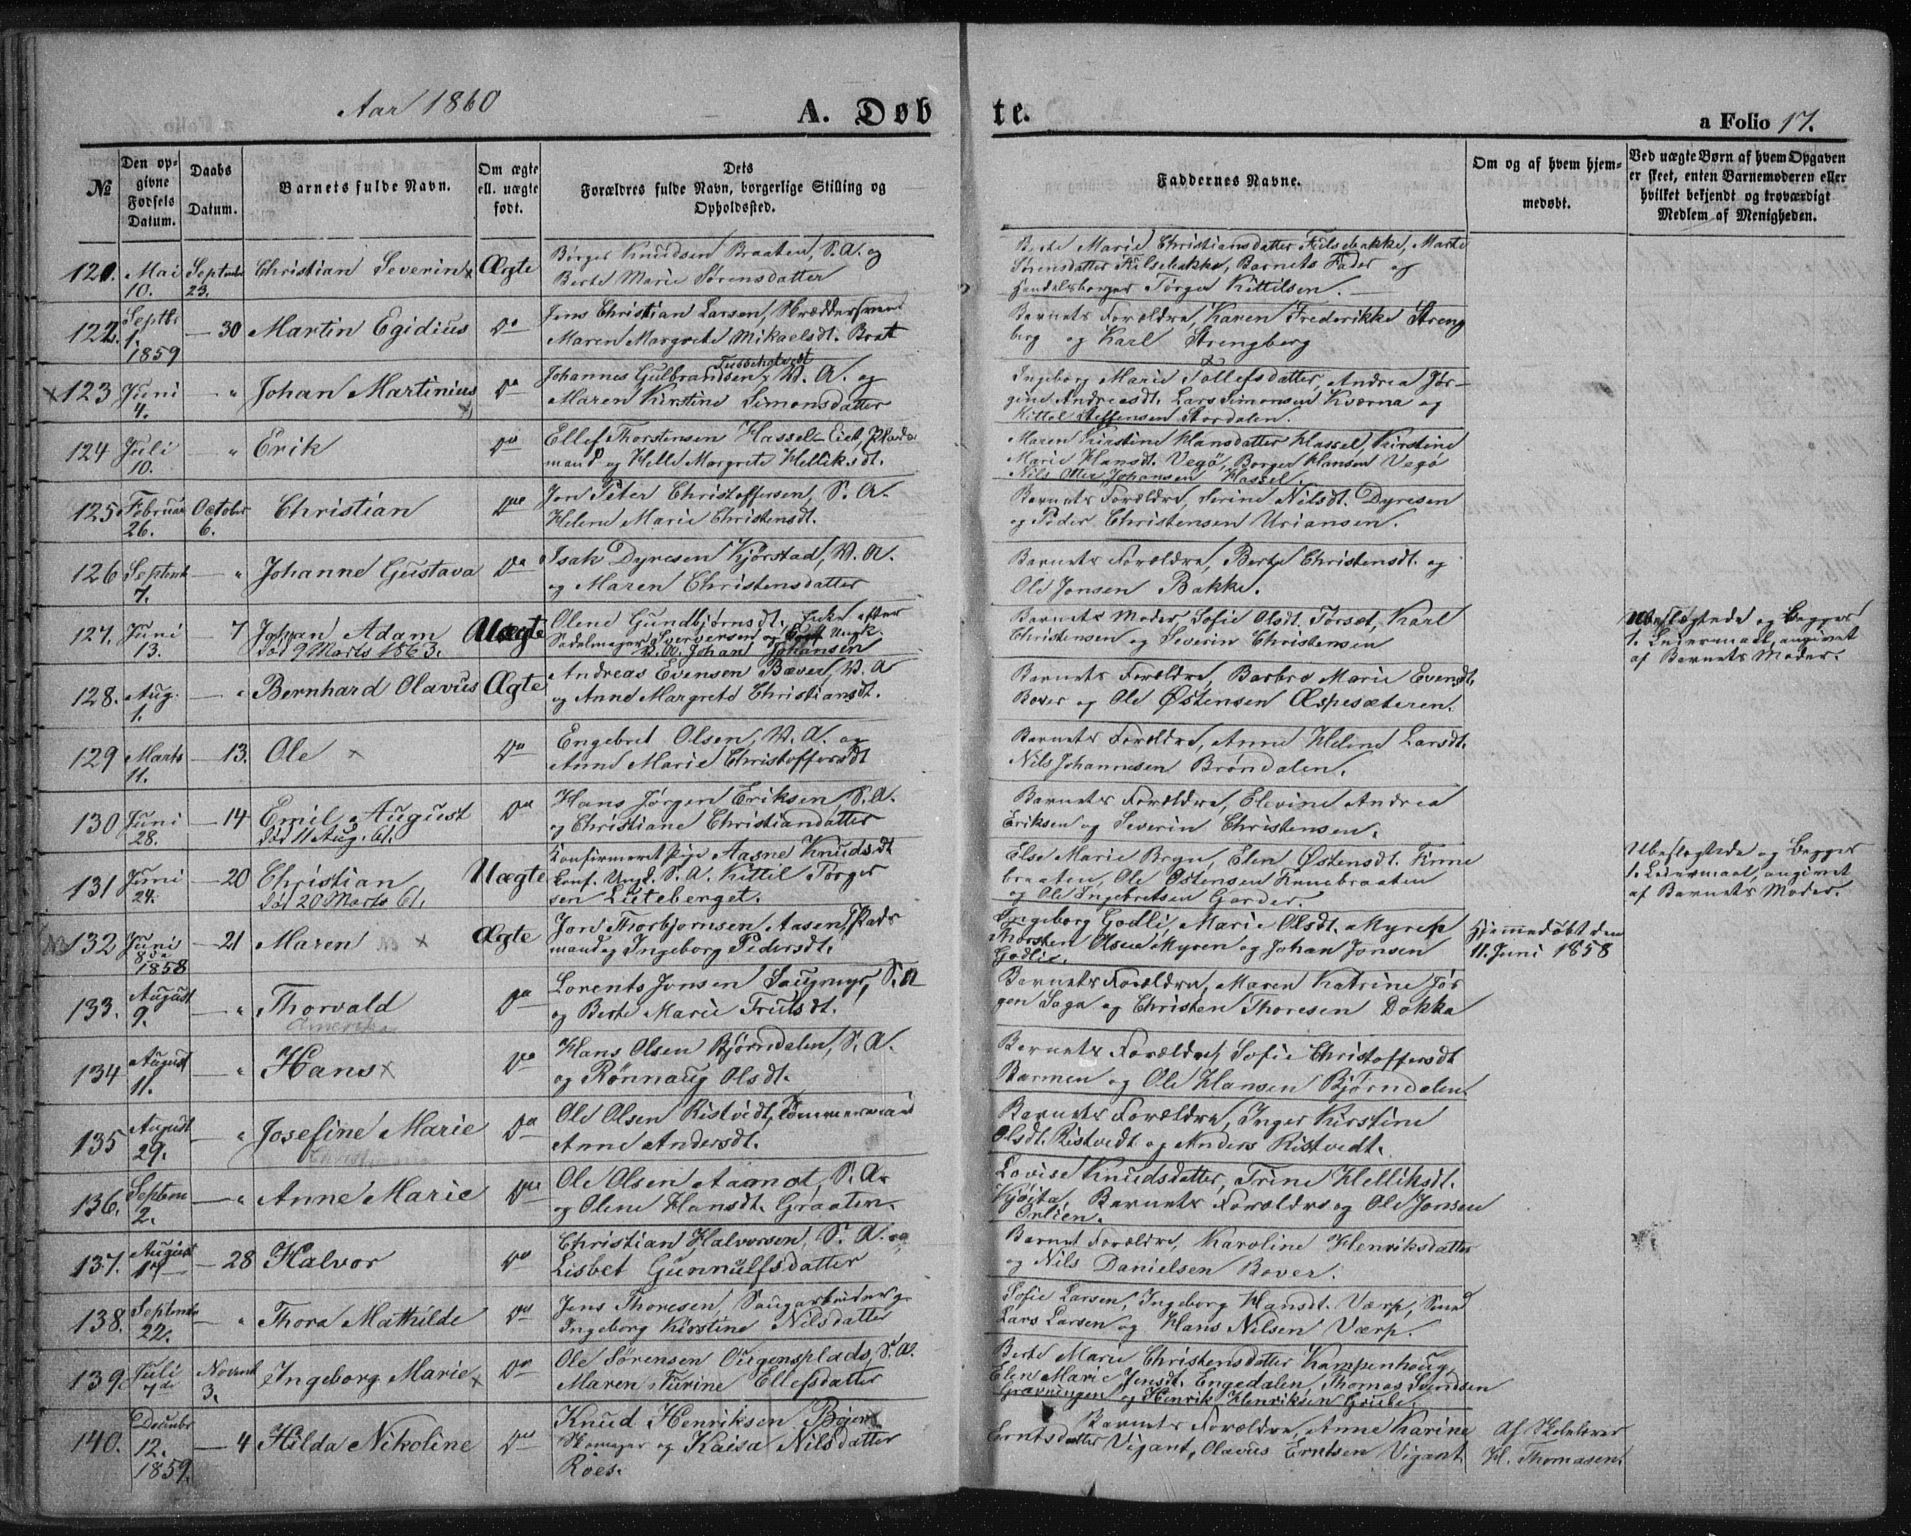 Aar 1860
A. Døbte.
a Folio 17.
№
Den opgivne Fødsels Datum.
Daabs Datum.
Barnets fulde Navn.
Om ægte ell. uægte født.
Dets Forældres fulde Navn, borgerlige Stilling og Opholdssted.
Faddernes Navne.
Om og af hvem hjemmedøbt.
Ved uægte Børn af hvem Opgaven er skeet, enten Barnemoderen eller hvilket bekjendt og troværdigt Medlem af Menigheden.
121. Mai 10. Septembr 23. Christian Severin x Ægte Børger Knudsen Braaten, S.A. og Berte Marie Sørensdatter
Berte Marie Christiansdatter Kilsebakke, Marte Sørensdatter Kilsebakke, Barnets Fader og Handelsborger Tørger Kittilsen.
122. Septbr 1. 1859 — 30 Martin Egidius Do Jens Christian Larsen, Maren Margrete Mikaelsdt. Brat
Barnets Forældre, Karen Frederikke Strengberg og Karl Strengberg
x 123 Juni 4. — " Johan Martinius Do Johannes Gulbrandsen, V.A. og Maren Kirstine Simonsdatter
Ingeborg Marie Tollefsdatter, Andrea Jørgine Andreasdt. Lars Simonsen Kværna og Kittel Steffensen Stordalen.
124 Juli 10. " Erik Do Ellef Thorstensen Hassel-Eiet, Pladsmand og Helle Margrete Helliksdt.
Maren Kirstine Hansdatter Hassel, Kirstine Marie Hansdt. Vegø, Borger Hansen Vegø Nils Otter Johansen Hassel.
125 Februar 26. October 6. Christian Do Jon Peter Christoffersen, S.A. Helene Marie Christensdt.
Barnets Forældre, Serine Nilsdt. Dyresen og Peder Christensen Uriansen.
126 Septemb 7. — " Johanne Gustava Do Isak Dyresen Kjørstad, V.A. og Maren Christensdatter
Barnets Forældre, Berte Christensdt. og Ole Jonsen Bakke.
127. Juni 13. — 7 Johan Adam død 9 Marts 1863. Uægte Olene Gundbjørnsdt. Enke efter Sadelmager Syversen og Ungk. V.A. Johan Johansen
Barnets Moder, Sofie Olsdt. Torset, Karl Christensen og Severin Christensen
Ubeslægtede og Begges 1. Leiermaal, angivet af Barnets Moder.
128. Aug. 1. — " Bernhard Olavus Ægte Andreas Evensen Bæver, V.A og Anne Margrete Christiansdt.
Barnets Forældre, Barbro Marie Evensdt. Bover og Ole Østensen Æspesæteren.
129 Marts 11. — 13. Ole x Do Engebret Olsen, V.A. og Anne Marie Christoffersdt
Barnets Forældre, Anne Helene Larsdt. Nils Johannesen Brøndalen.
130 Juni 28. — 14 Emil August død 11 Aug. 61. Do Hans Jørgen Eriksen, S.A. og Christiane Christiandatter
Barnets Forældre, Elevine Andrea Eriksen og Severin Christensen.
131 Juni 24. — 20 Christian død 20 Marts 61. Uægte Konfirmeret Pige Aasne Knudsdt konf. Ungk. S.A. Kittil Tørgersen Liteberget.
Else Marie Bryn, Elen Østensdt. Finnebraaten, Ole Østensen Finnebraaten og Ole Ingebretsen Garder.
Ubeslægtede og Begges 1. Leiermaal, angivet af Barnets Moder.
NB 132 Juni 8de 1858 — 21 Maren x Ægte Jon Thorbjørnsen Aasen, Pladsmand, Ingeborg Pedersdt.
Ingeborg Godli, Marie Olsdt. Myren Thorsten Olsen Myren og Johan Jonsen Godlie.
Hjemmedøbt den 11. Juni 1858
133. August 9. — " Thorvald Amerika Do Lorents Jonsen Saugmyr, S.A og Berte Marie Trulsdt.
Barnets Forældre, Maren Katrine Jørgen Saga og Christen Thoresen Dokka
134 August 11. " Hans x Do Hans Olsen Bjørndalen, S.A. og Rønnaug Olsdt.
Barnets Forældre, Sofie Christoffersdt Barmen og Ole Hansen Bjørndalen
135 August 29. — " Josefine Marie Do Ole Olsen Ristvedt, Tømmermand Anne Andersdt.
Barnets Forældre, Inger Kirstine Olsdt. Ristvedt og Anders Ristvedt.
136. Septem 2. — " Anne Marie Do Ole Olsen Aamot, S.A. og Olene Hansdt. Graaten.
Lovise Knudsdatter, Trine Helliksdt. Kjøita, Barnets Forældre og Ole Jonsen Ørlien.
137. August — 28 Halvor Do Christian Halvorsen, S.A. og Lisbet Gunnulfsdatter
Barnet Forældre, Karoline Henriksdatter og Nils Danielsen Bover.
138. Septembr 22. — " Thora Mathilde Do Jens Thoresen, Saugarbeider g. Ingeborg Kirstine Nilsdatter
Sofie Larsen, Ingeborg Hansdt. Værp, Lars Larsen og Hans Nilsen Værp.
139. Juli 7de Novemb 3. Ingeborg Marie x Do Ole Sørensen Oigensplads, S.A. Maren Turine Ellefsdatter
Berte Marie Christensdatter Kampenhoug, Elen Marie Jensdt. Engedalen, Thomas Svendsen Gravningen og Henrik Henriksen Grube.
140. Decembr 12. 1859. — 4 Hilda Nikoline Do Knud Henriksen Skomager og Kaisa Nilsdatter Roes.
Barnets Forældre, Anne Karine Erntsdatter Vigant, Olavus Erntsen Vigant.
Af Skolelærer H. Thomasen.